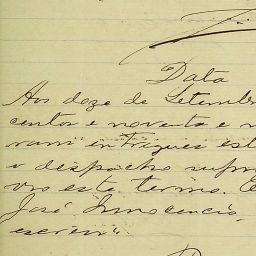 Data
Aos doze de Setembr
centos e noventa e n
ram entregues est
o despacho supr
vro este termo. E
José Innocencio,
escrevi.